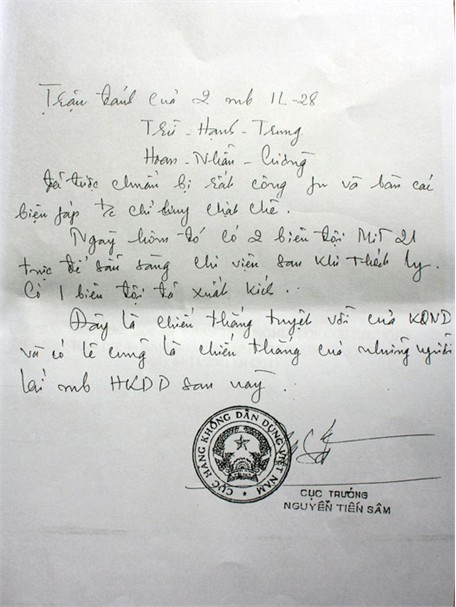 Trận đánh của 2 mb IL-28
Trừ - Hạnh - Trung
Hoan - Nhân - Cương
đã được chuẩn bị rất công fu và bàn các
biện fáp t/c chỉ huy chặt chẽ.
Ngày hôm đó có 2 biên đội MiT 21
trực để sẵn sàng chi viện sau khi thoát ly.
Có 1 biên đội đã xuất kích.
Đây là chiến thắng tuyệt vời của KQND
và có lẽ cũng là chiến thắng của những người
lái mb HKDD sau này.
CỤC HÀNG KHÔNG DÂN DỤNG VIỆT NAM
CỤC TRƯỞNG
NGUYỄN TIẾN SÂM